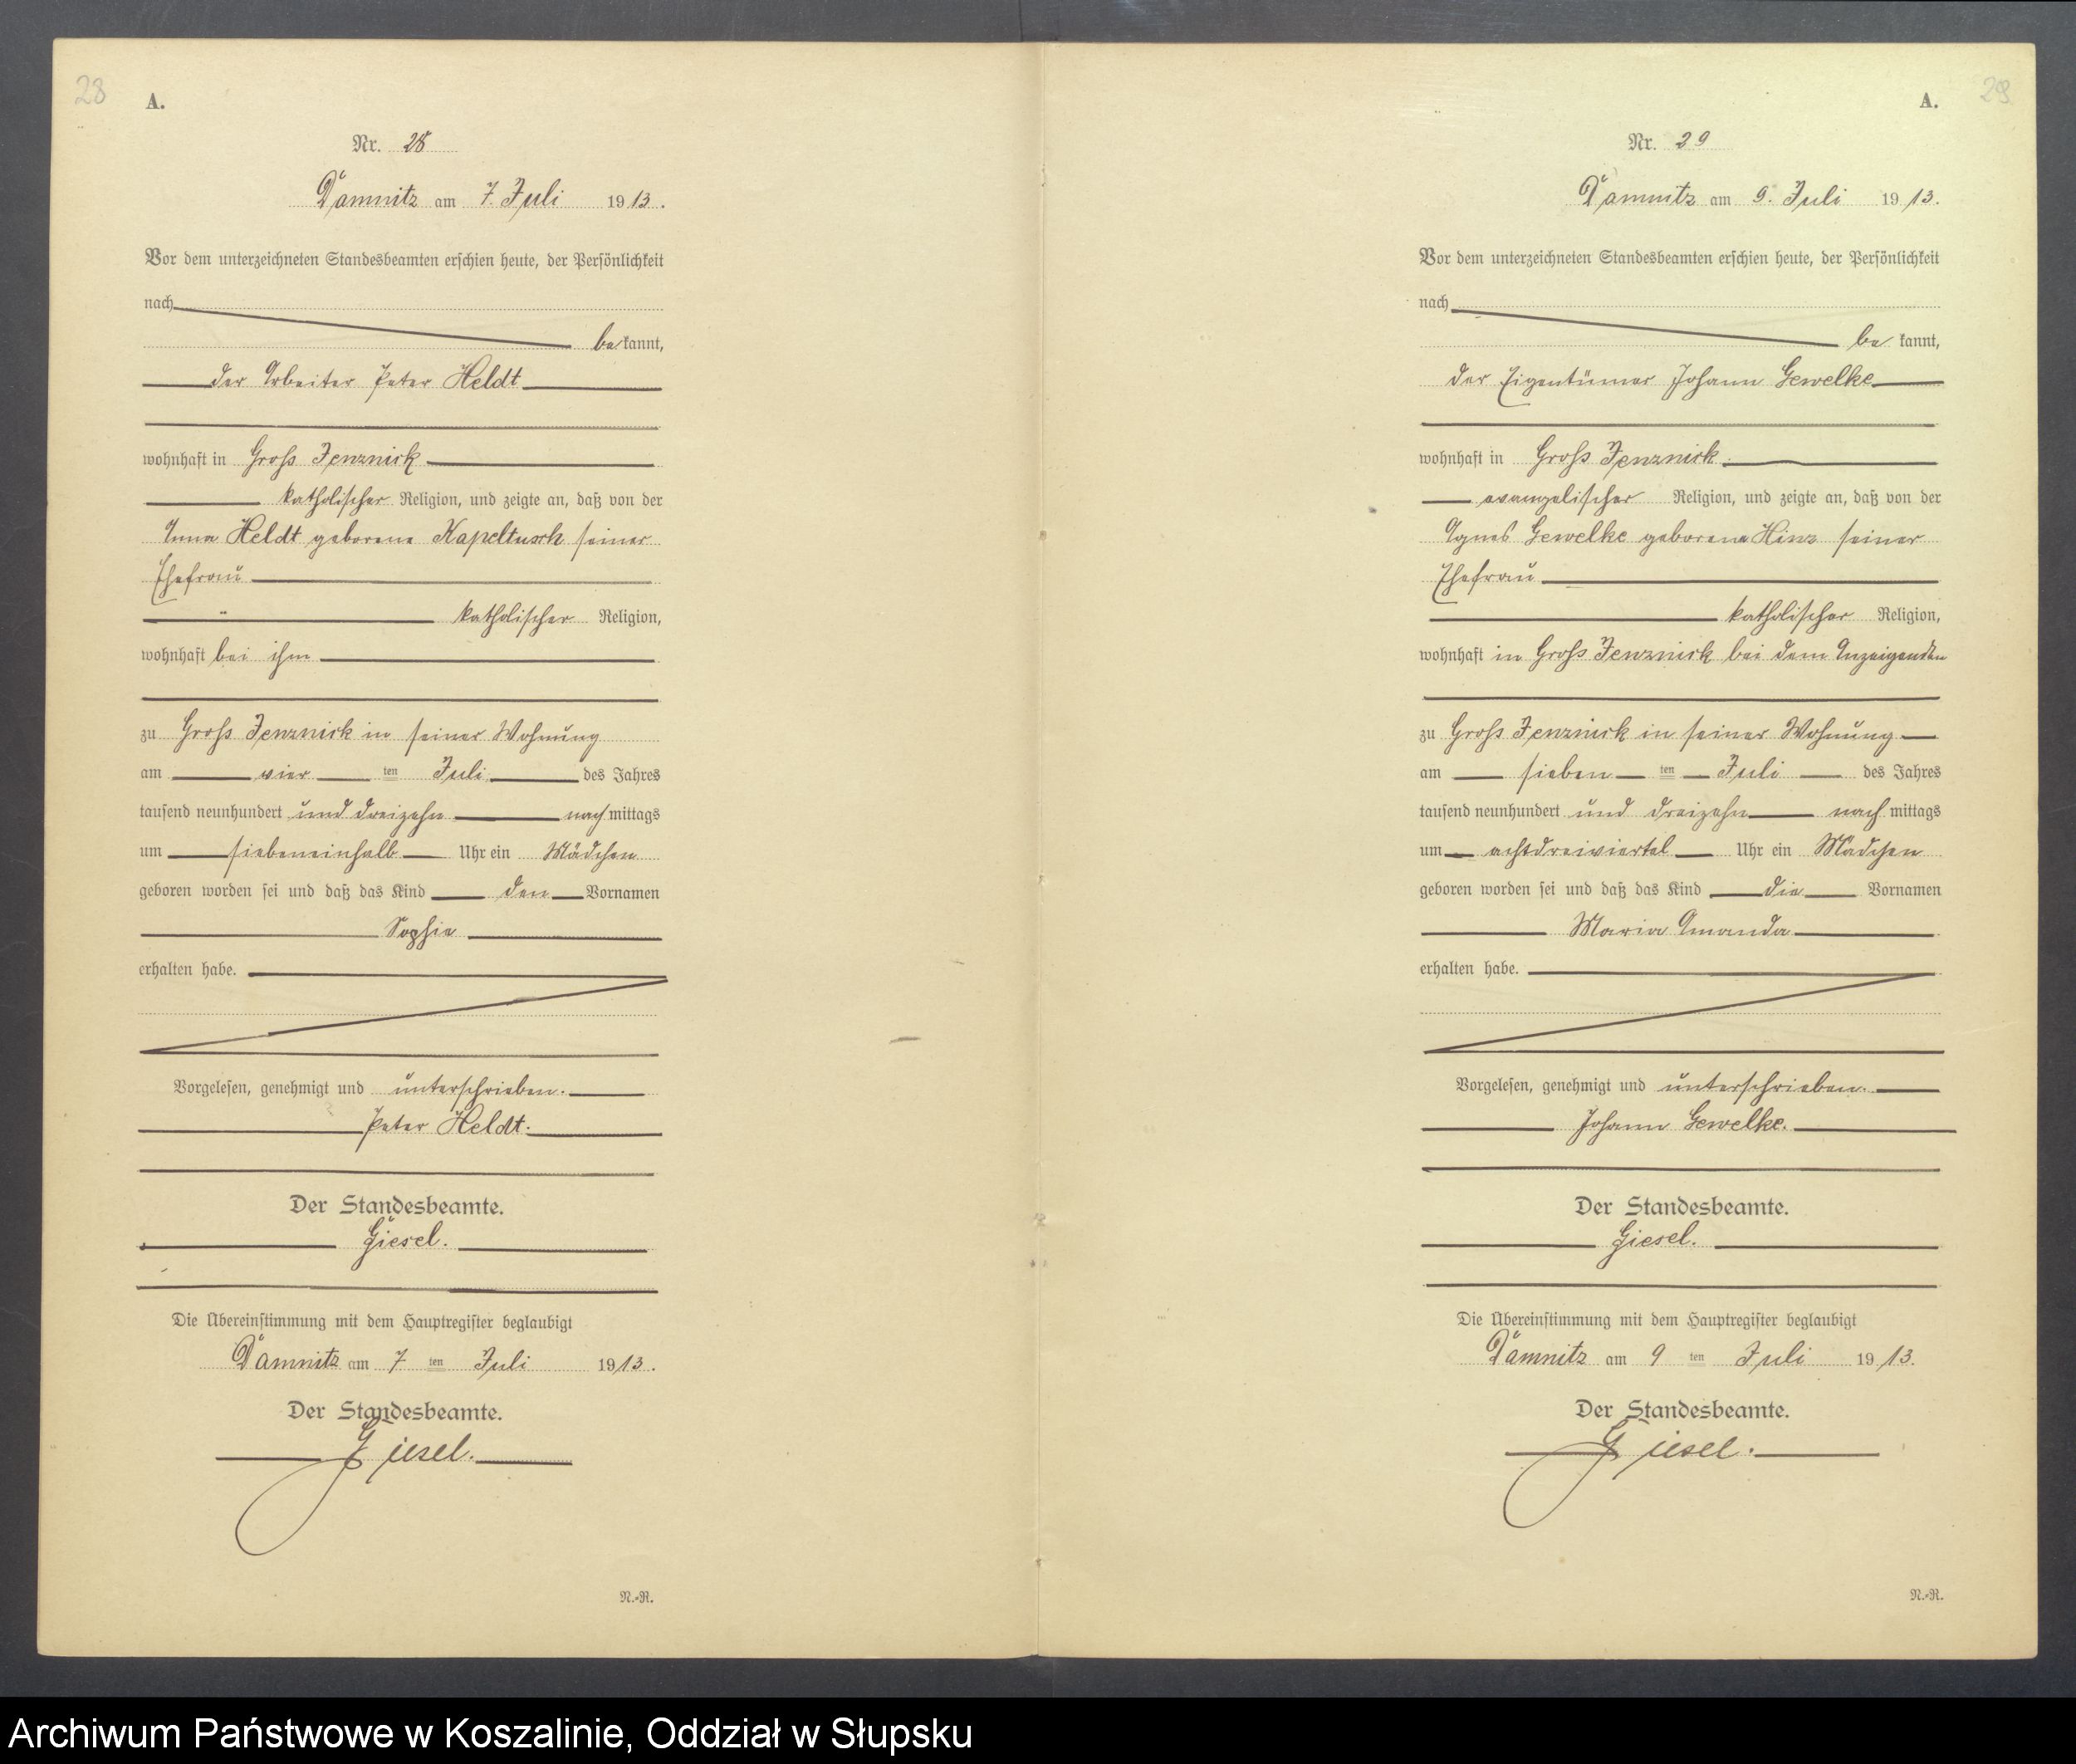 28
A.
Nr. 28
Damnitz am 7. Juli 1913.
Vor dem unterzeichneten Standesbeamten erschien heute, der Persönlichkeit
nach
be kannt,
der Arbeiter Peter Heldt
wohnhaft in Groß Jenznick
katholischer Religion, und zeigte an, daß von der
Anna Heldt geborene seiner
Ehefrau
katholischer Religion,
wohnhaft bei ihm
zu Groß Jenznick in seiner Wohnung
am vier ten Juli des Jahres
tausend neunhundert und dreizehn nach mittags
um siebeneinhalb Uhr ein Mädchen
geboren worden sei und daß das Kind den Vornamen
Sophie
erhalten habe.
Vorgelesen, genehmigt und unterschrieben.
Peter Heldt.
Der Standesbeamte.
Giesel.
Die Übereinstimmung mit dem Hauptregister beglaubigt
Damnitz am 7 ten Juli 1913.
Der Standesbeamte.
Giesel.
N.-R.
29
A.
Nr. 29
Damnitz am 9. Juli 1913.
Vor dem unterzeichneten Standesbeamten erschien heute, der Persönlichkeit
nach
be kannt,
der Eigentümer Johann Gewelke
wohnhaft in Groß Jenznick
evangelischer Religion, und zeigte an, daß von der
Agnes Gewelke geborene Hinz seiner
Ehefrau
katholischer Religion,
wohnhaft in Groß Jenznick bei dem Anzeigenden
zu Groß Jenznick in seiner Wohnung
am sieben ten Juli des Jahres
tausend neunhundert und dreizehn nach mittags
um achtdreiviertel Uhr ein Mädchen
geboren worden sei und daß das Kind die Vornamen
Maria Amanda
erhalten habe.
Vorgelesen, genehmigt und unterschrieben.
Johann Gewelke.
Der Standesbeamte.
Giesel.
Die Übereinstimmung mit dem Hauptregister beglaubigt
Damnitz am 9 ten Juli 1913.
Der Standesbeamte.
Giesel.
N.-R.
Archiwum Państwowe w Koszalinie, Oddział w Słupsku